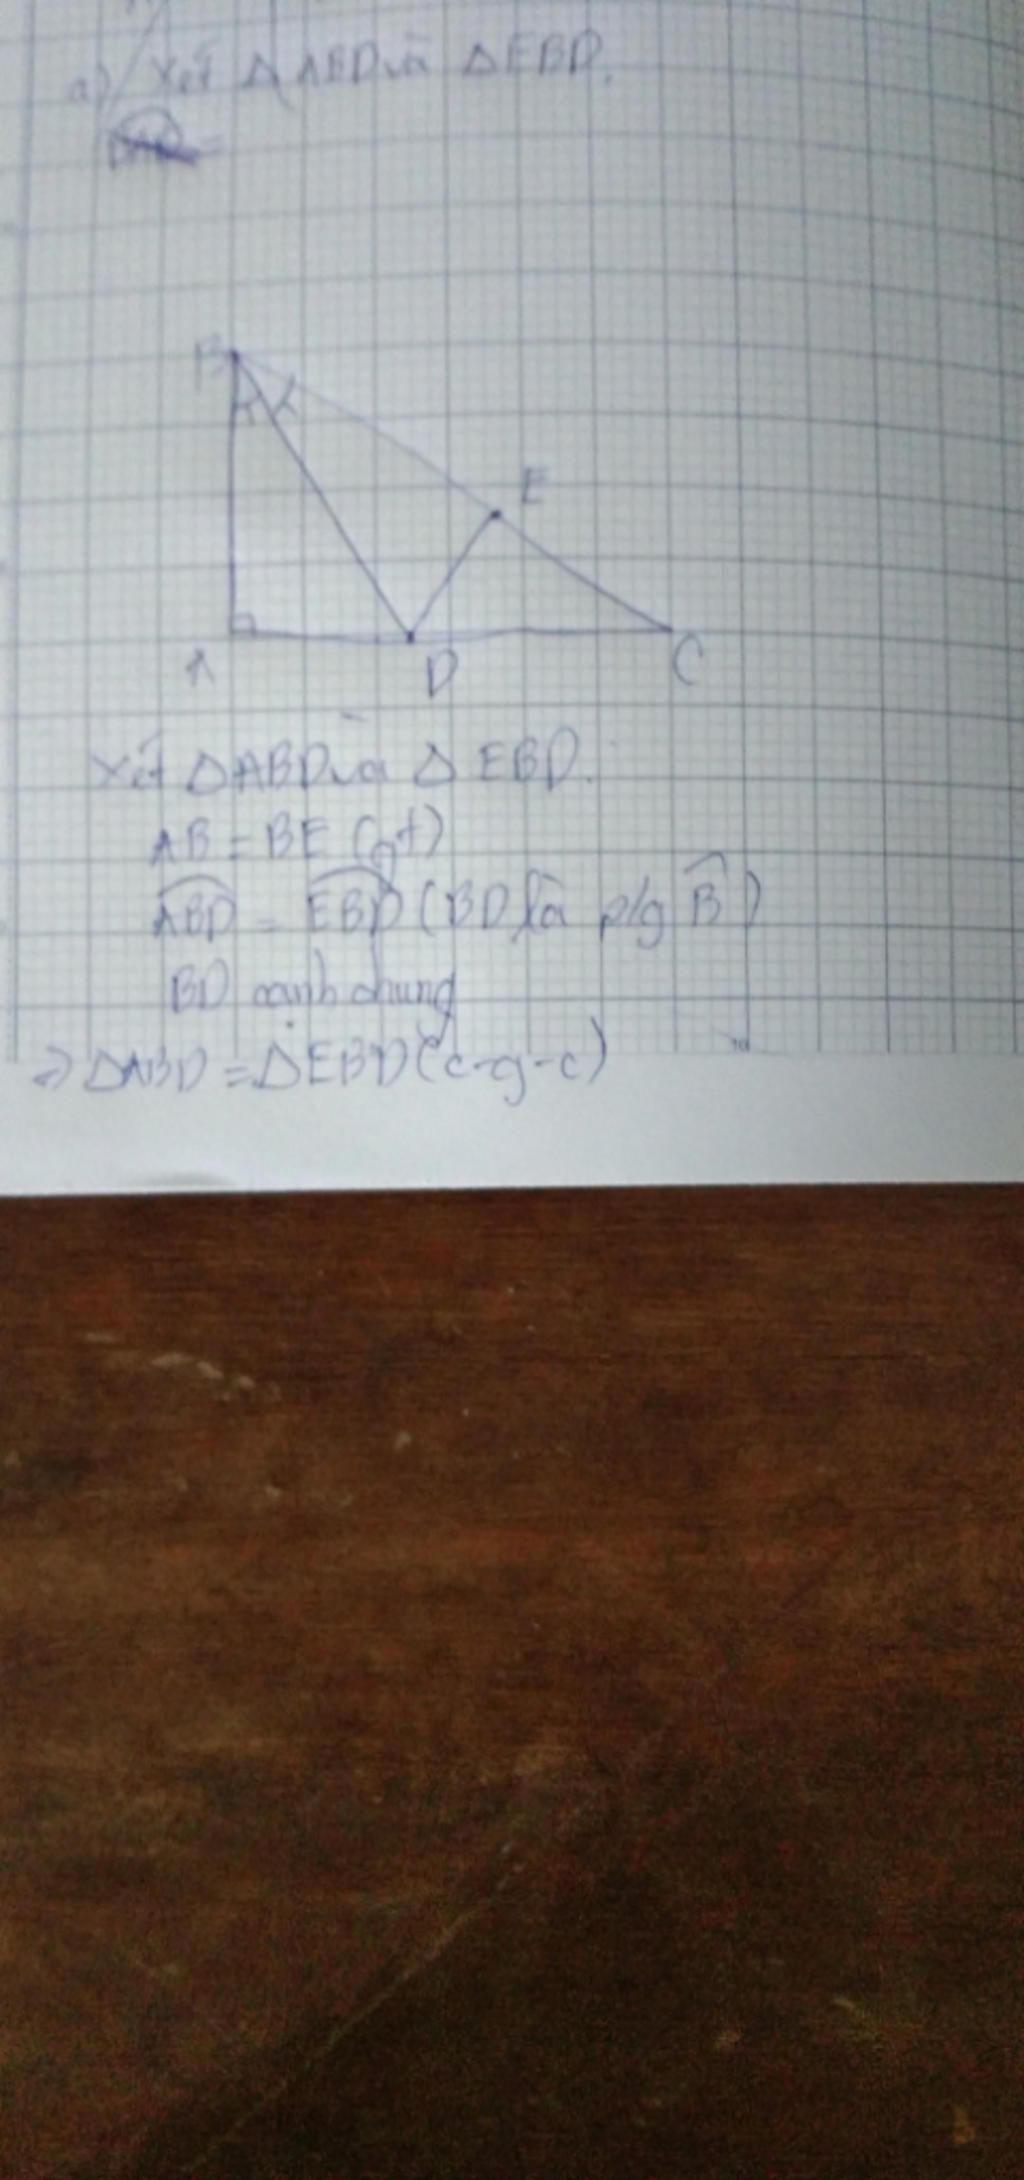 a) Xét Δ ABD và Δ EBD.
B
E
A
D
C
Xét ΔABD và Δ EBD.
AB = BE (gt)
ABD̂ = EBD̂ (BD là p/g B̂)
BD cạnh chung
=> ΔABD = ΔEBD (c-g-c)